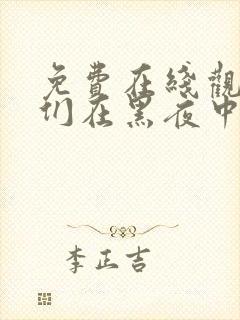 免費在綫觀
们在黑夜中
李正吉